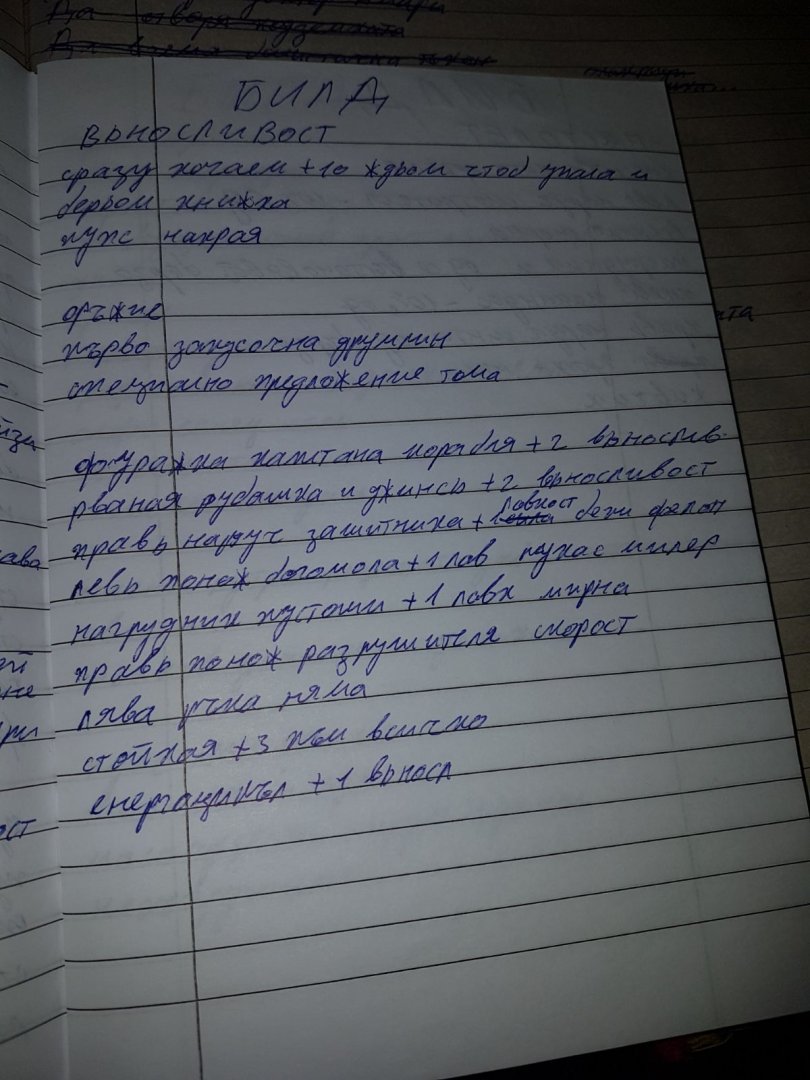 Да отворя подземката
БИЛД
ВЫНОСЛИВОСТ
сразу качаем +10 ждьом чтоб упала и
берьом книжка
пупс накрая
оръжие
първо закусочна друмлин
специално предложение тома
фуражка капитана корабля +2 вынослив.
рваная рубашка и джинсы +2 выносливост
правы наруч защитника +1 ловкост бежи фелон
левы понож богомола +1 лов пукас милер
нагрудник пустоши +1 ловк мирна
правы понож разрушителя скорост
лява ръка няма
стойкая +3 към всичко
енергацикъл +1 выносл